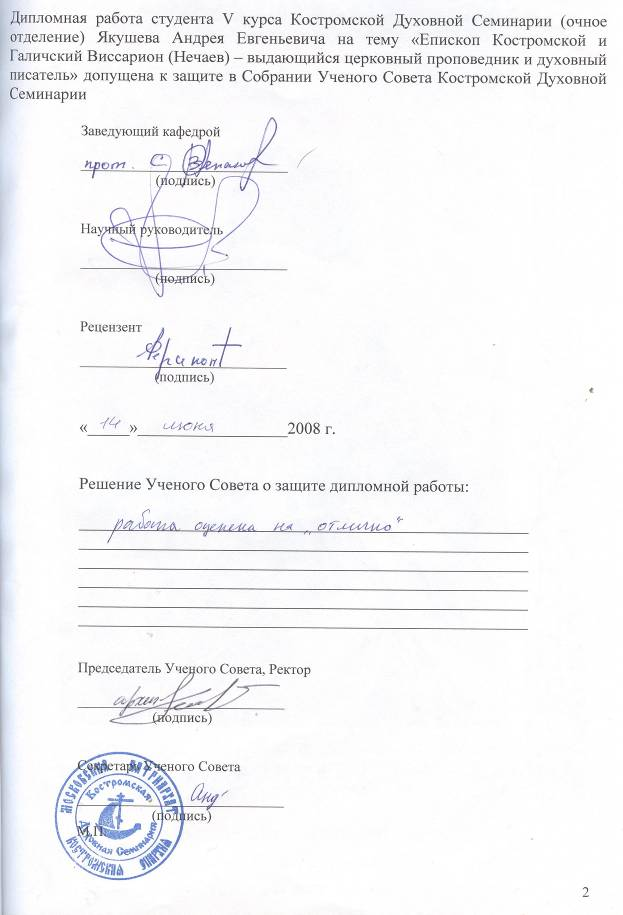 Дипломная работа студента V курса Костромской Духовной Семинарии (очное
отделение) Якушева Андрея Евгеньевича на тему «Епископ Костромской и
Галичский Виссарион (Нечаев) – выдающийся церковный проповедник и духовный
писатель» допущена к защите в Собрании Ученого Совета Костромской Духовной
Семинарии
Заведующий кафедрой
прот. С
(подпись)
Научный руководитель
(подпись)
Рецензент
Ферапонт
(подпись)
« 14 » июня 2008 г.
Решение Ученого Совета о защите дипломной работы:
работа оценена на „отлично“
Председатель Ученого Совета, Ректор
(подпись)
Секретарь Ученого Совета
(подпись)
М.П.
МОСКОВСКИЙ ПАТРИАРХАТ
Костромская
Духовная Семинария
КОСТРОМСКАЯ ЕПАРХИЯ
2